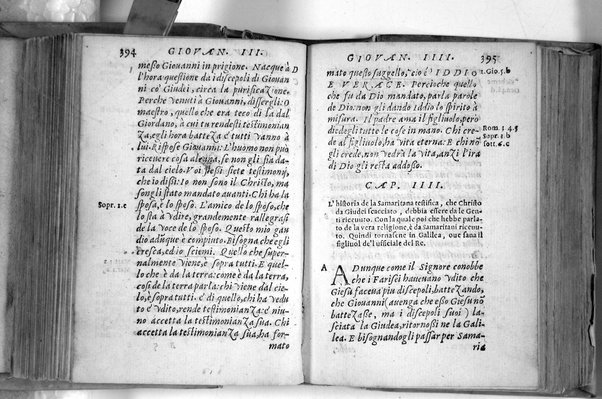 394 GIOVAN. III.
messo Giovanni in prigione. Nacque à D
l'hora questione da i discepoli di Giovan
ni co' Giudei, circa la purificazione.
Perche venuti a Giovanni, dissergli: O
maestro, quello che era teco di la dal
Giordano, à cui tu rendesti testimonian
za, egli hora battezza e tutti vanno à
lui. Rispose Giovanni: L'huomo non può
ricevere cosa alcuna, se non gli sia da-
ta dal cielo. Voi stessi siete testimonij,
che io dissi: Io non sono il Christo, ma
son gli stato mandato avanti. Chi ha la
Sopr. 1.c sposa, è lo sposo. L'amico de lo sposo, che
lo sta à vdire, grandemente rallegrasi
de la voce de lo sposo. Questo mio gau
dio adunque è compiuto. Bisogna che egli
cresca, ed io sciemi. Quello che super-
nalmente viene, è sopra tutti. E quel-
lo che è da la terra: come è da la terra,
cosi de la terra parla: chi viene dal cie-
lo, è sopra tutti. e di quello, chi ha vedu
to e vdito, rende testimonianza: e niu-
no accetta la testimonianza sua. Chi
accetta la testimonianza sua, ha for-
mato
GIOVAN. IIII. 395
mato questo suggello, cio è IDDIO 1.Gio.5.b
E VERACE. Percioche quello
che fu da Dio mandato, parla parole
de Dio. non gli dando Iddio lo spirito à
misura. Il padre ama il figliuolo, però
diedegli tutte le cose in mano. Chi cre- Rom. 1 4.5
de al figliuolo, ha vita eterna: E chi nõ Sopr. 1.b
gli crede, non vedrà la vita, anzi l'ira Sott. 6.c
di Dio gli resta addosso.
CAP. IIII.
L'historia de la Samaritana testifica, che Christo
da Giudei scacciato, debbia essere da le Gen-
ti ricevuto. Con la qual poi che hebbe parla-
to de la vera religione, è da Samaritani ricevu
to. Quindi tornasene in Galilea, ove sana il
figliuol de l'ufficiale del Re.
A ADunque come il Signore conobbe
che i Farisei havevano vdito che
Giesu faceva piu discepoli, battezando,
che Giovanni (avenga che esso Giesu nõ
battezasse, ma i discepoli suoi) la-
sciata la Giudea, ritornossi ne la Gali-
lea. E bisognandogli passar per Sama-
ria